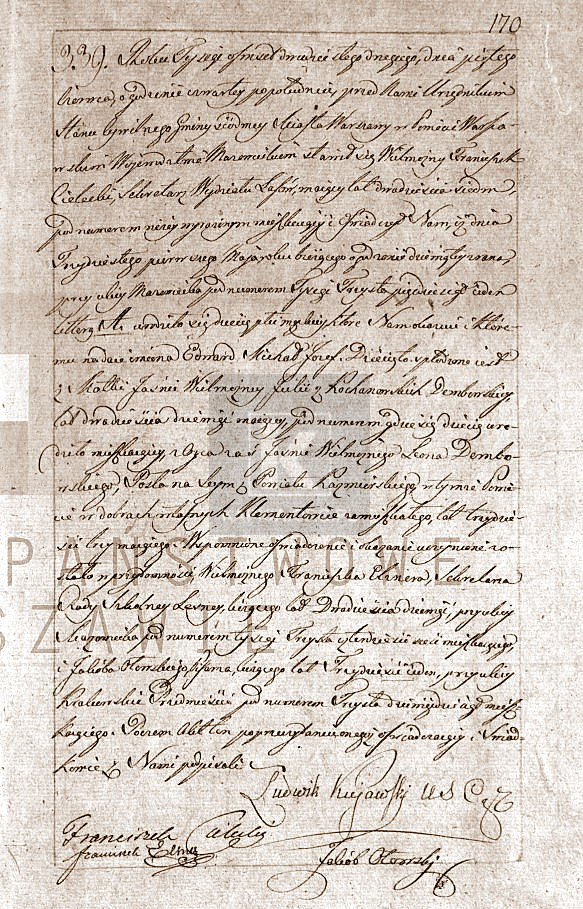 170
339. Roku Tysiąc ośmset dwudziestego drugiego, dnia piątego
Czerwca, o godzinie czwartej popołudniu, przed Nami Urzędnikiem
Stanu Cywilnego Gminy siódmey Miasta Warszawy w Powiecie Warsza-
wskim Wojewodztwie Mazowieckim stawił się Wielmożny Franciszek
Cielecki Sekretarz Wydziału Lasów, maiący lat dwadzieścia siedm,
pod numerem niżey wyrażonym mieszkaiący i oświadczył Nam iż dnia
Trzydziestego pierwszego Maja roku bieżącego o godzinie dziewiątey zrana
przy ulicy Mazowiecka pod numerem Tysiąc Trzysta pięćdziesiąt ieden
litterą A. urodziło się dziecię płci męskiey które Nam okazał i które-
mu nadaie imiona Edward Michał Józef. Dziecię to spłodzone iest
z Matki Jaśnie Wielmożney Julii z Kochanowskich Dembowskiey,
lat dwadzieścia dziewięć maiącey, pod numerem gdzie się dziecię uro-
dziło mieszkaiącey, z Oyca zaś Jaśnie Wielmożnego Leona Dembo-
wskiego, Posła na Seym z Powiatu Kazimierskiego, w tymże Powie-
cie w dobrach własnych Klementowice zamieszkałego, lat trzydzie-
ści trzy maiącego. Wspomnione oświadczenie i okazanie uczynione zo-
stało w przytomności Wielmożnego Franciszka Elsnera, Sekretarza
Rady Szkolney Leśney, liczącego lat Dwadzieścia dziewięć, przy ulicy
Mazowiecka pod numerem tysiąc Trzysta czterdzieści sześć mieszkaiącego,
i Jakóba Olewskiego Pisarza, liczącego lat Trzydzieści ieden, przy ulicy
Krakowskie Przedmieście pod numerem Trzysta dziewięćdziesiąt miesz-
kaiącego. Poczem Akt ten po przeczytaniu onego oświadczaiący i Świad-
kowie z Nami podpisali
Ludwik Kujawski U S C
Franciszek Cielecki
Franciszek Elsner
Jakób Olewski
PAŃSTWOWE